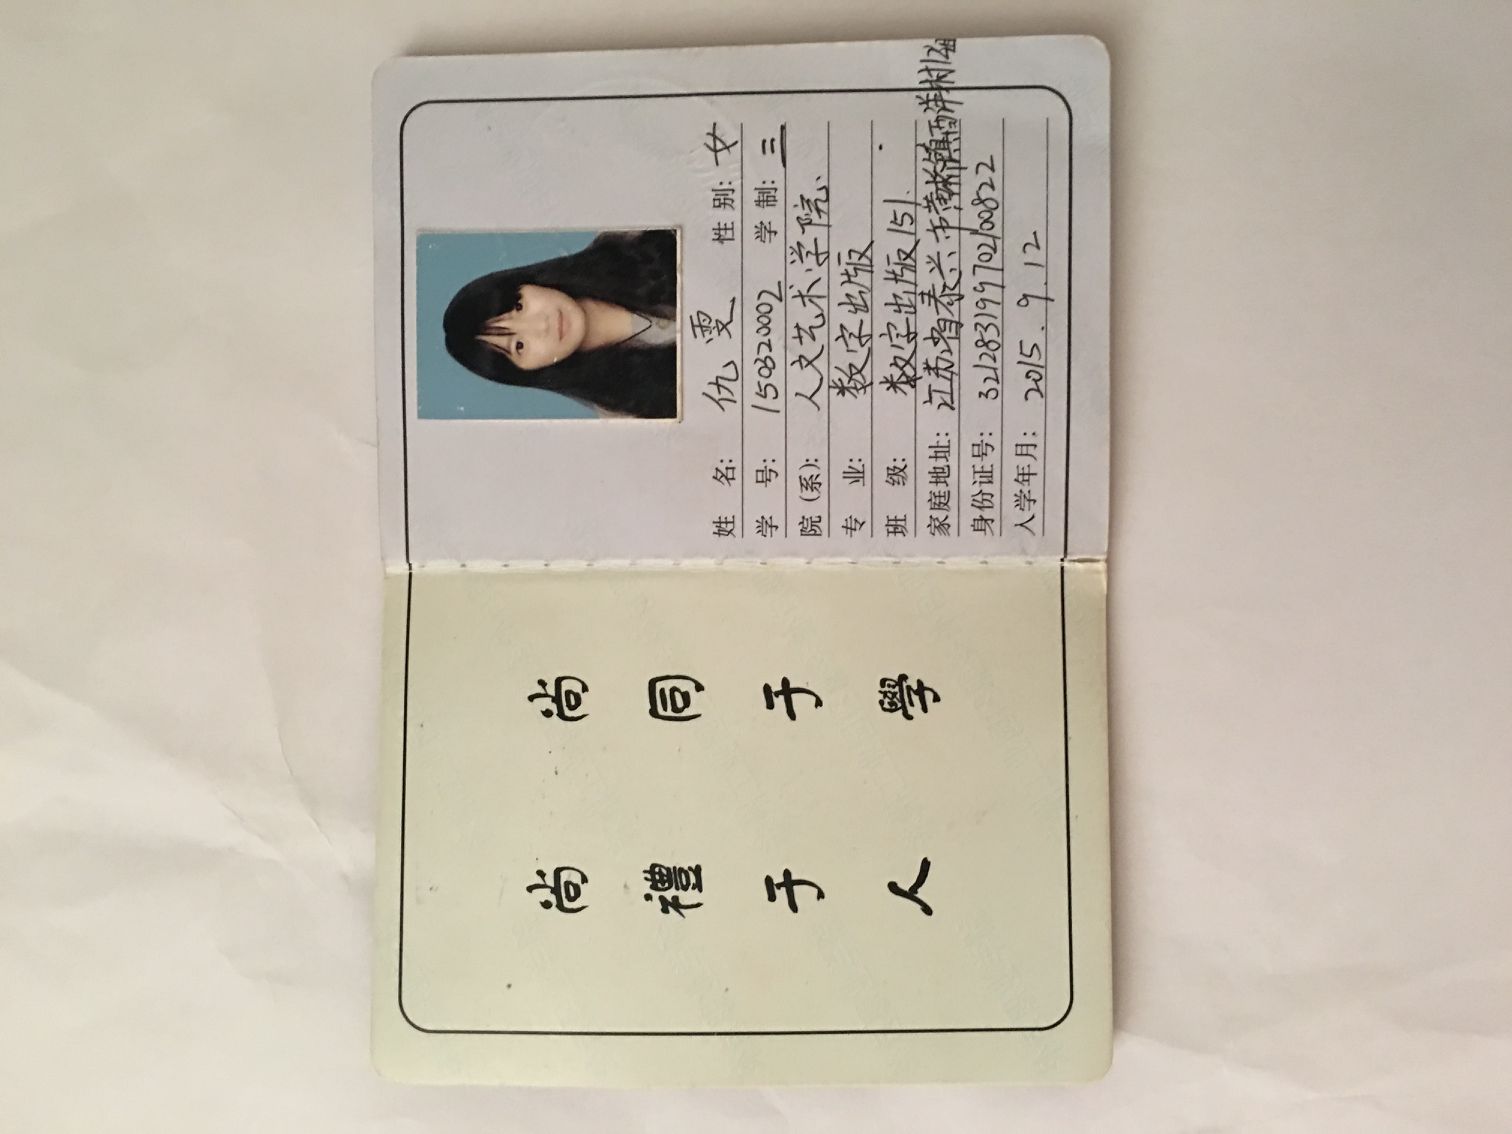 尚同于學
尚禮于人
姓 名: 仇雯 性别: 女
学 号: 150320002 学制: 三
院(系): 人文艺术学院.
专 业: 数字出版
班 级: 数字出版151.
家庭地址: 江苏省泰兴市黄桥镇西洋村12组
身份证号: 321283199702100822
入学年月: 2015.9.12